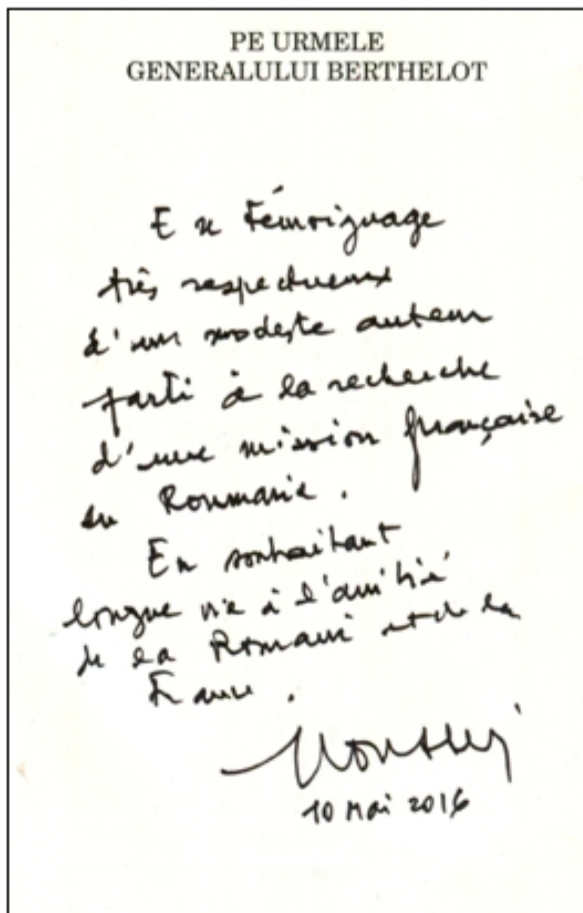 PE URMELE
GENERALULUI BERTHELOT
En témoignage
très respectueux
d'un modeste auteur
parti à la recherche
d'une mission française
en Roumanie.
En souhaitant
longue vie à l'amitié
de la Romani et de la
France.
10 Mai 2016